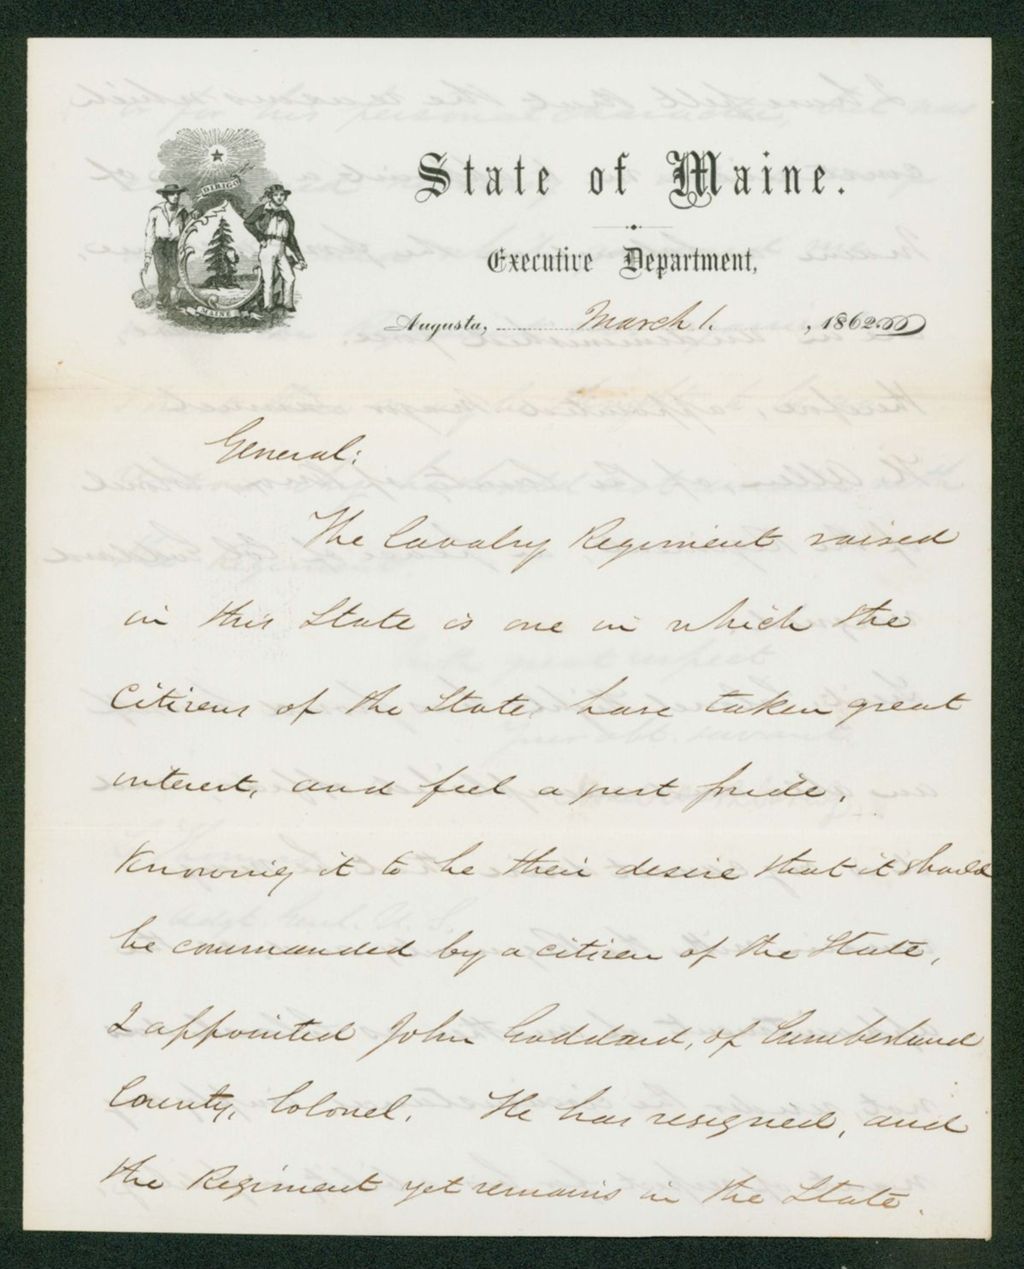 DIRIGO
MAINE
State of Maine.
Executive Department,
Augusta, March 1. , 1862
General:
The Cavalry Regiment raised
in this State is one in which the
Citizens of the State, have taken great
interest, and feel a just pride.
Knowing it to be their desire that it should
be commanded by a citizen of the State,
I appointed John Goddard, of Cumberland
County, Colonel. He has resigned, and
the Regiment yet remains in the State.